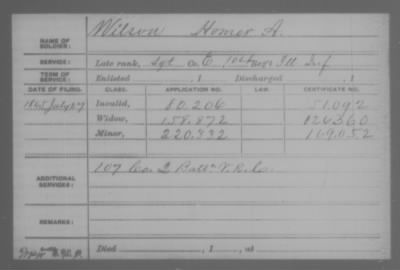 NAME OF SOLDIER: Wilson Homer A.
SERVICE: Late rank, Sgt Co. E, 104 Reg't Ill Inf
TERM OF SERVICE: Enlisted , 1 Discharged , 1
DATE OF FILING. CLASS. APPLICATION NO. LAW. CERTIFICATE NO.
1865 July 27 Invalid, 80.206 51.092
Widow, 158.872 126360
Minor, 220.332 169.052
ADDITIONAL SERVICES: 107 Co. 2 Batt. V.R.C.
REMARKS:
Died , 1 , at